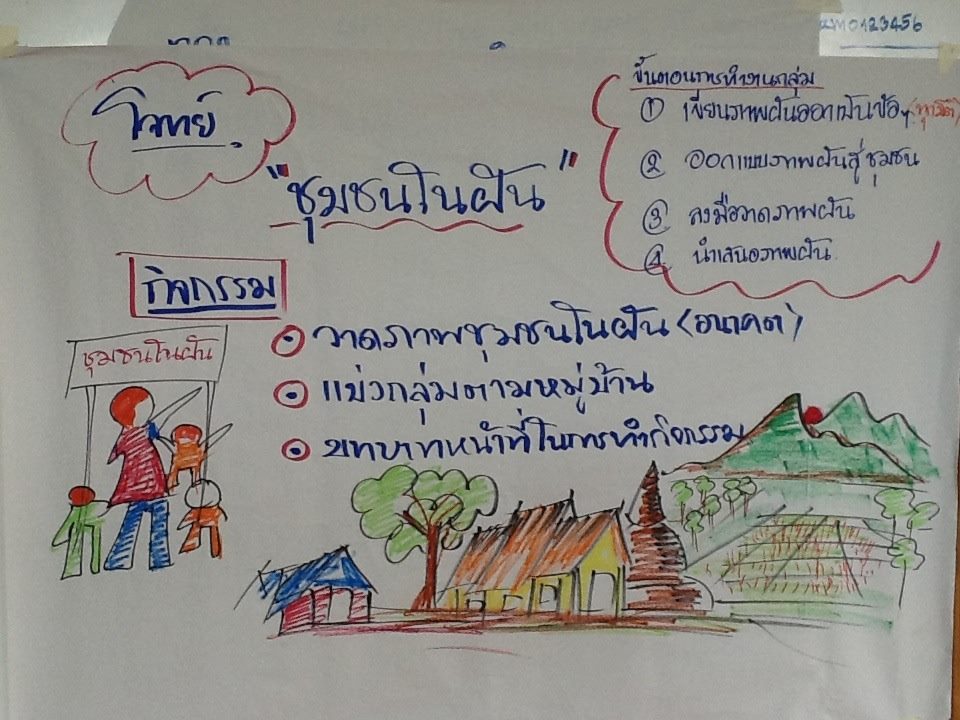 โจทย์.
"ชุมชนในฝัน"
ขั้นตอนการทำงานกลุ่ม
① เขียนภาพฝันออกเป็นข้อๆ (ทุกมิติ)
② ออกแบบภาพฝันสู่ชุมชน
③ ลงมือวาดภาพฝัน
④ นำเสนอภาพฝัน
กิจกรรม
ชุมชนในฝัน
วาดภาพชุมชนในฝัน (อนาคต)
แบ่งกลุ่มตามหมู่บ้าน
บทบาทหน้าที่ในการทำกิจกรรม